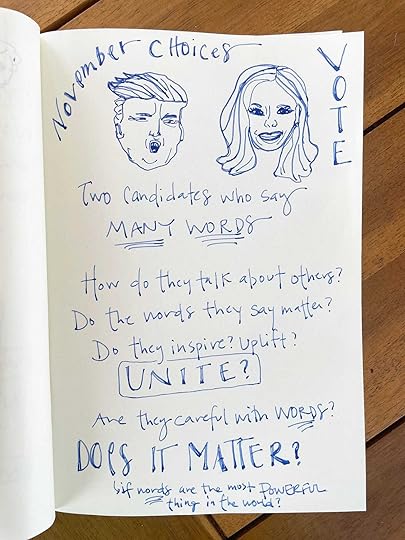 November Choices
VOTE
Two Candidates who say
MANY WORDS
How do they talk about others?
Do the words they say matter?
Do they inspire? Uplift?
UNITE?
Are they careful with WORDS?
DOES IT MATTER?
if words are the most POWERFUL
thing in the world?